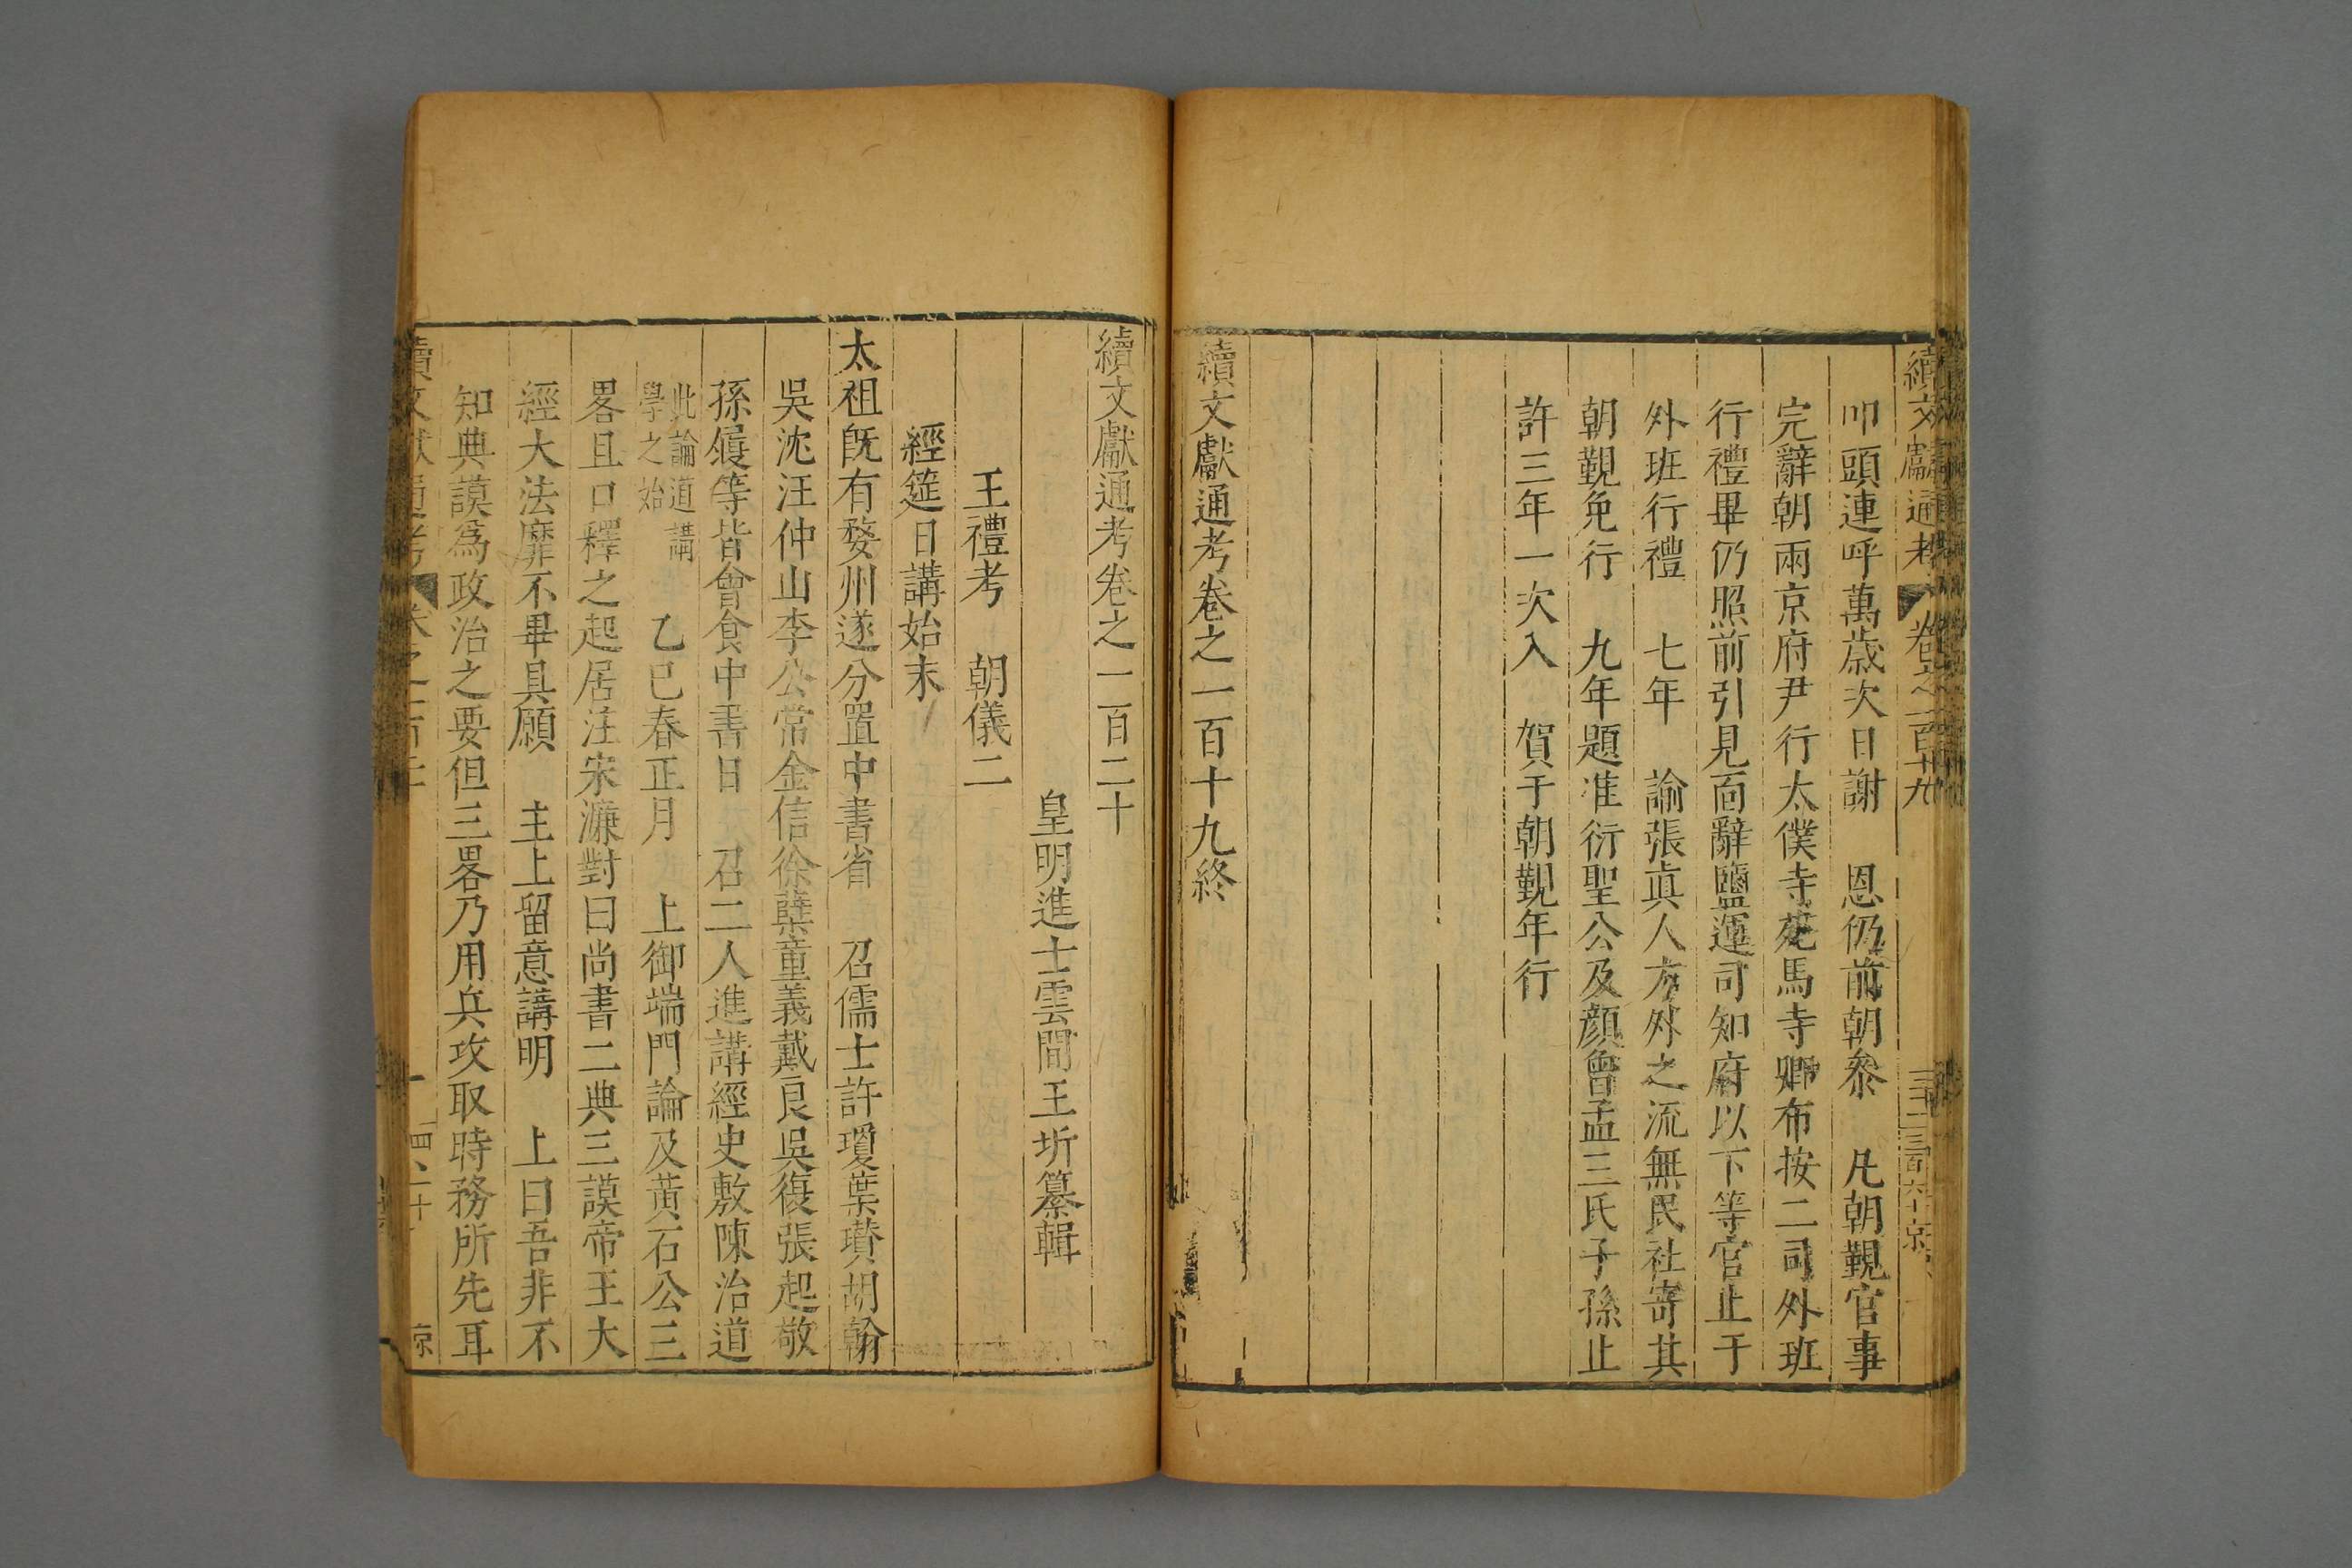 續文獻通考 卷之一百十九
叩頭連呼萬歲次日謝 恩仍前朝叅 凡朝覲官事
完辭朝兩京府尹行太僕寺苑馬寺卿布按二司外班
行禮畢仍照前引見面辭鹽運司知府以下等官止于
外班行禮 七年 諭張眞人方外之流無民社寄其
朝覲免行 九年題准衍聖公及顏曾孟三氏子孫止
許三年一次入 賀于朝覲年行
續文獻通考卷之一百十九終
續文獻通考卷之一百二十
皇明進士雲間王圻纂輯
王禮考 朝儀二
經筵日講始末
太祖旣有婺州遂分置中書省 召儒士許瓊葉瓚胡翰
吳沈汪仲山李公常金信徐孽童義戴良吳復張起敬
孫履等皆會食中書日 召二人進講經史敷陳治道
此論道講
學之始
乙巳春正月 上御端門論及黃石公三
畧且口釋之起居注宋濂對曰尚書二典三謨帝王大
經大法靡不畢具願 主上留意講明 上曰吾非不
知典謨爲政治之要但三畧乃用兵攻取時務所先耳
續文獻通考